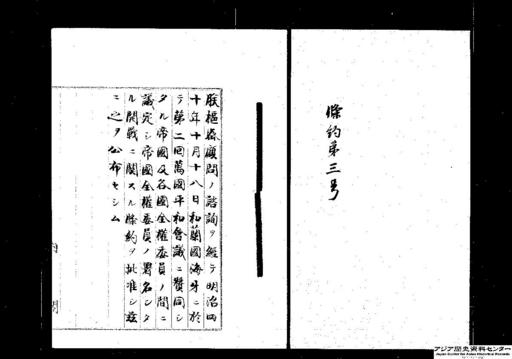 條約第三号
朕樞密顧問ノ諮詢ヲ經テ明治四
十年十月十八日和蘭國海牙ニ於
テ第二回萬國平和會議ニ贊同シ
タル帝國及各國全權委員ノ間ニ
議定シ帝國全權委員ノ署名シタ
ル開戰ニ關スル條約ヲ批准シ茲
ニ之ヲ公布セシム
内閣
アジア歴史資料センター
Japan Center for Asian Historical Records